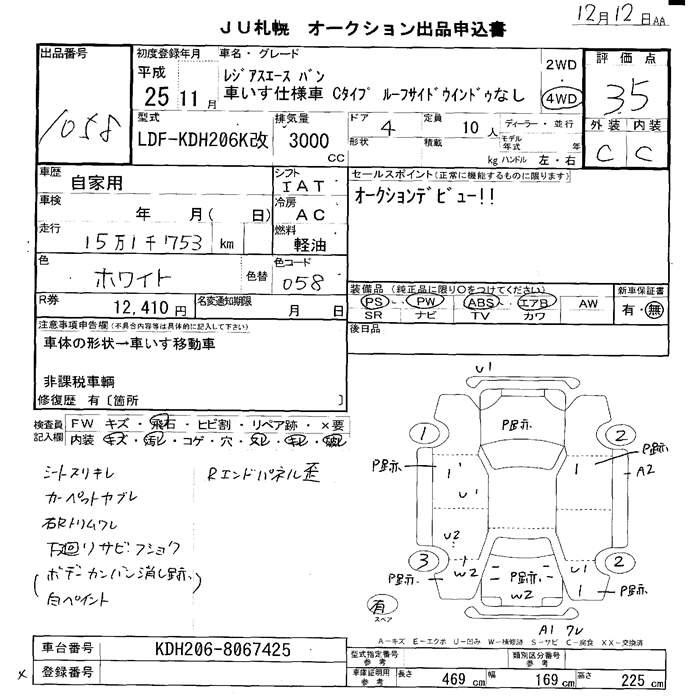 12月12日AA
JU札幌 オークション出品申込書
出品番号
1058
初度登録年月
平成
25 11 月
車名・グレード
レジアスエース バン
車いす仕様車 Cタイプ ルーフサイドウインドゥなし
2WD
4WD
評価点
35
外装 内装
C C
型式
LDF-KDH206K改
排気量
3000
CC
ドア 4
形状
定員 10 人
積載 kg
ディーラー・並行
モデル年式 年
ハンドル 左・右
車歴
自家用
車検
年 月( 日)
走行
15万1千753 km
シフト
IAT
冷房
AC
燃料
軽油
セールスポイント(正常に機能するものに限ります)
オークションデビュー!!
色
ホワイト
色替
色コード
058
R券
12,410円
名変通知期限
月 日
装備品(純正品に限り○をつけてください)
PS PW ABS エアB AW
SR ナビ TV カワ
新車保証書
有・無
後日品
注意事項申告欄(不具合内容等は具体的に記入して下さい)
車体の形状→車いす移動車
非課税車輌
修復歴 有〔箇所 〕
検査員記入欄
FW キズ・飛石・ヒビ割・リペア跡・×要
内装 キズ・汚レ・コゲ・穴・
シートスリキレ
カーペットヤブレ
右Rトリムワレ
下廻リサビフショク
(ボデーカンバン消し跡、
白ペイント
Rエンドパネル歪
U1
P跡.
1
2
P跡.
1'
U1
1
P跡.
A2
U2
3
1
W2
P跡.
P跡.
W2
U1
1
2
P跡
有
スペア
A1 ワレ
A-キズ E-エクボ U-凹み W-補修跡 S-サビ C-腐食 XX-交換済
車台番号
KDH206-8067425
登録番号
型式指定番号
参考
類別区分番号
参考
車庫証明用
参考
長さ 469 cm
幅 169 cm
高さ 225 cm
×